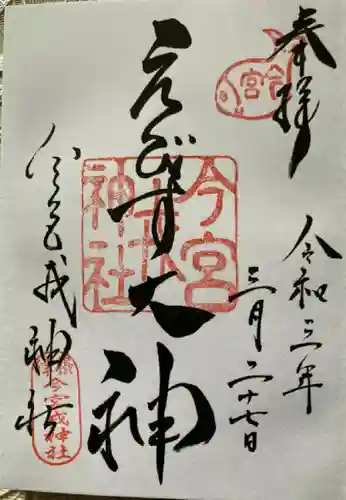 奉拝
今宮
令和三年
三月二十七日
えびす大神
今宮
神社
今宮戎神社
今宮戎神社